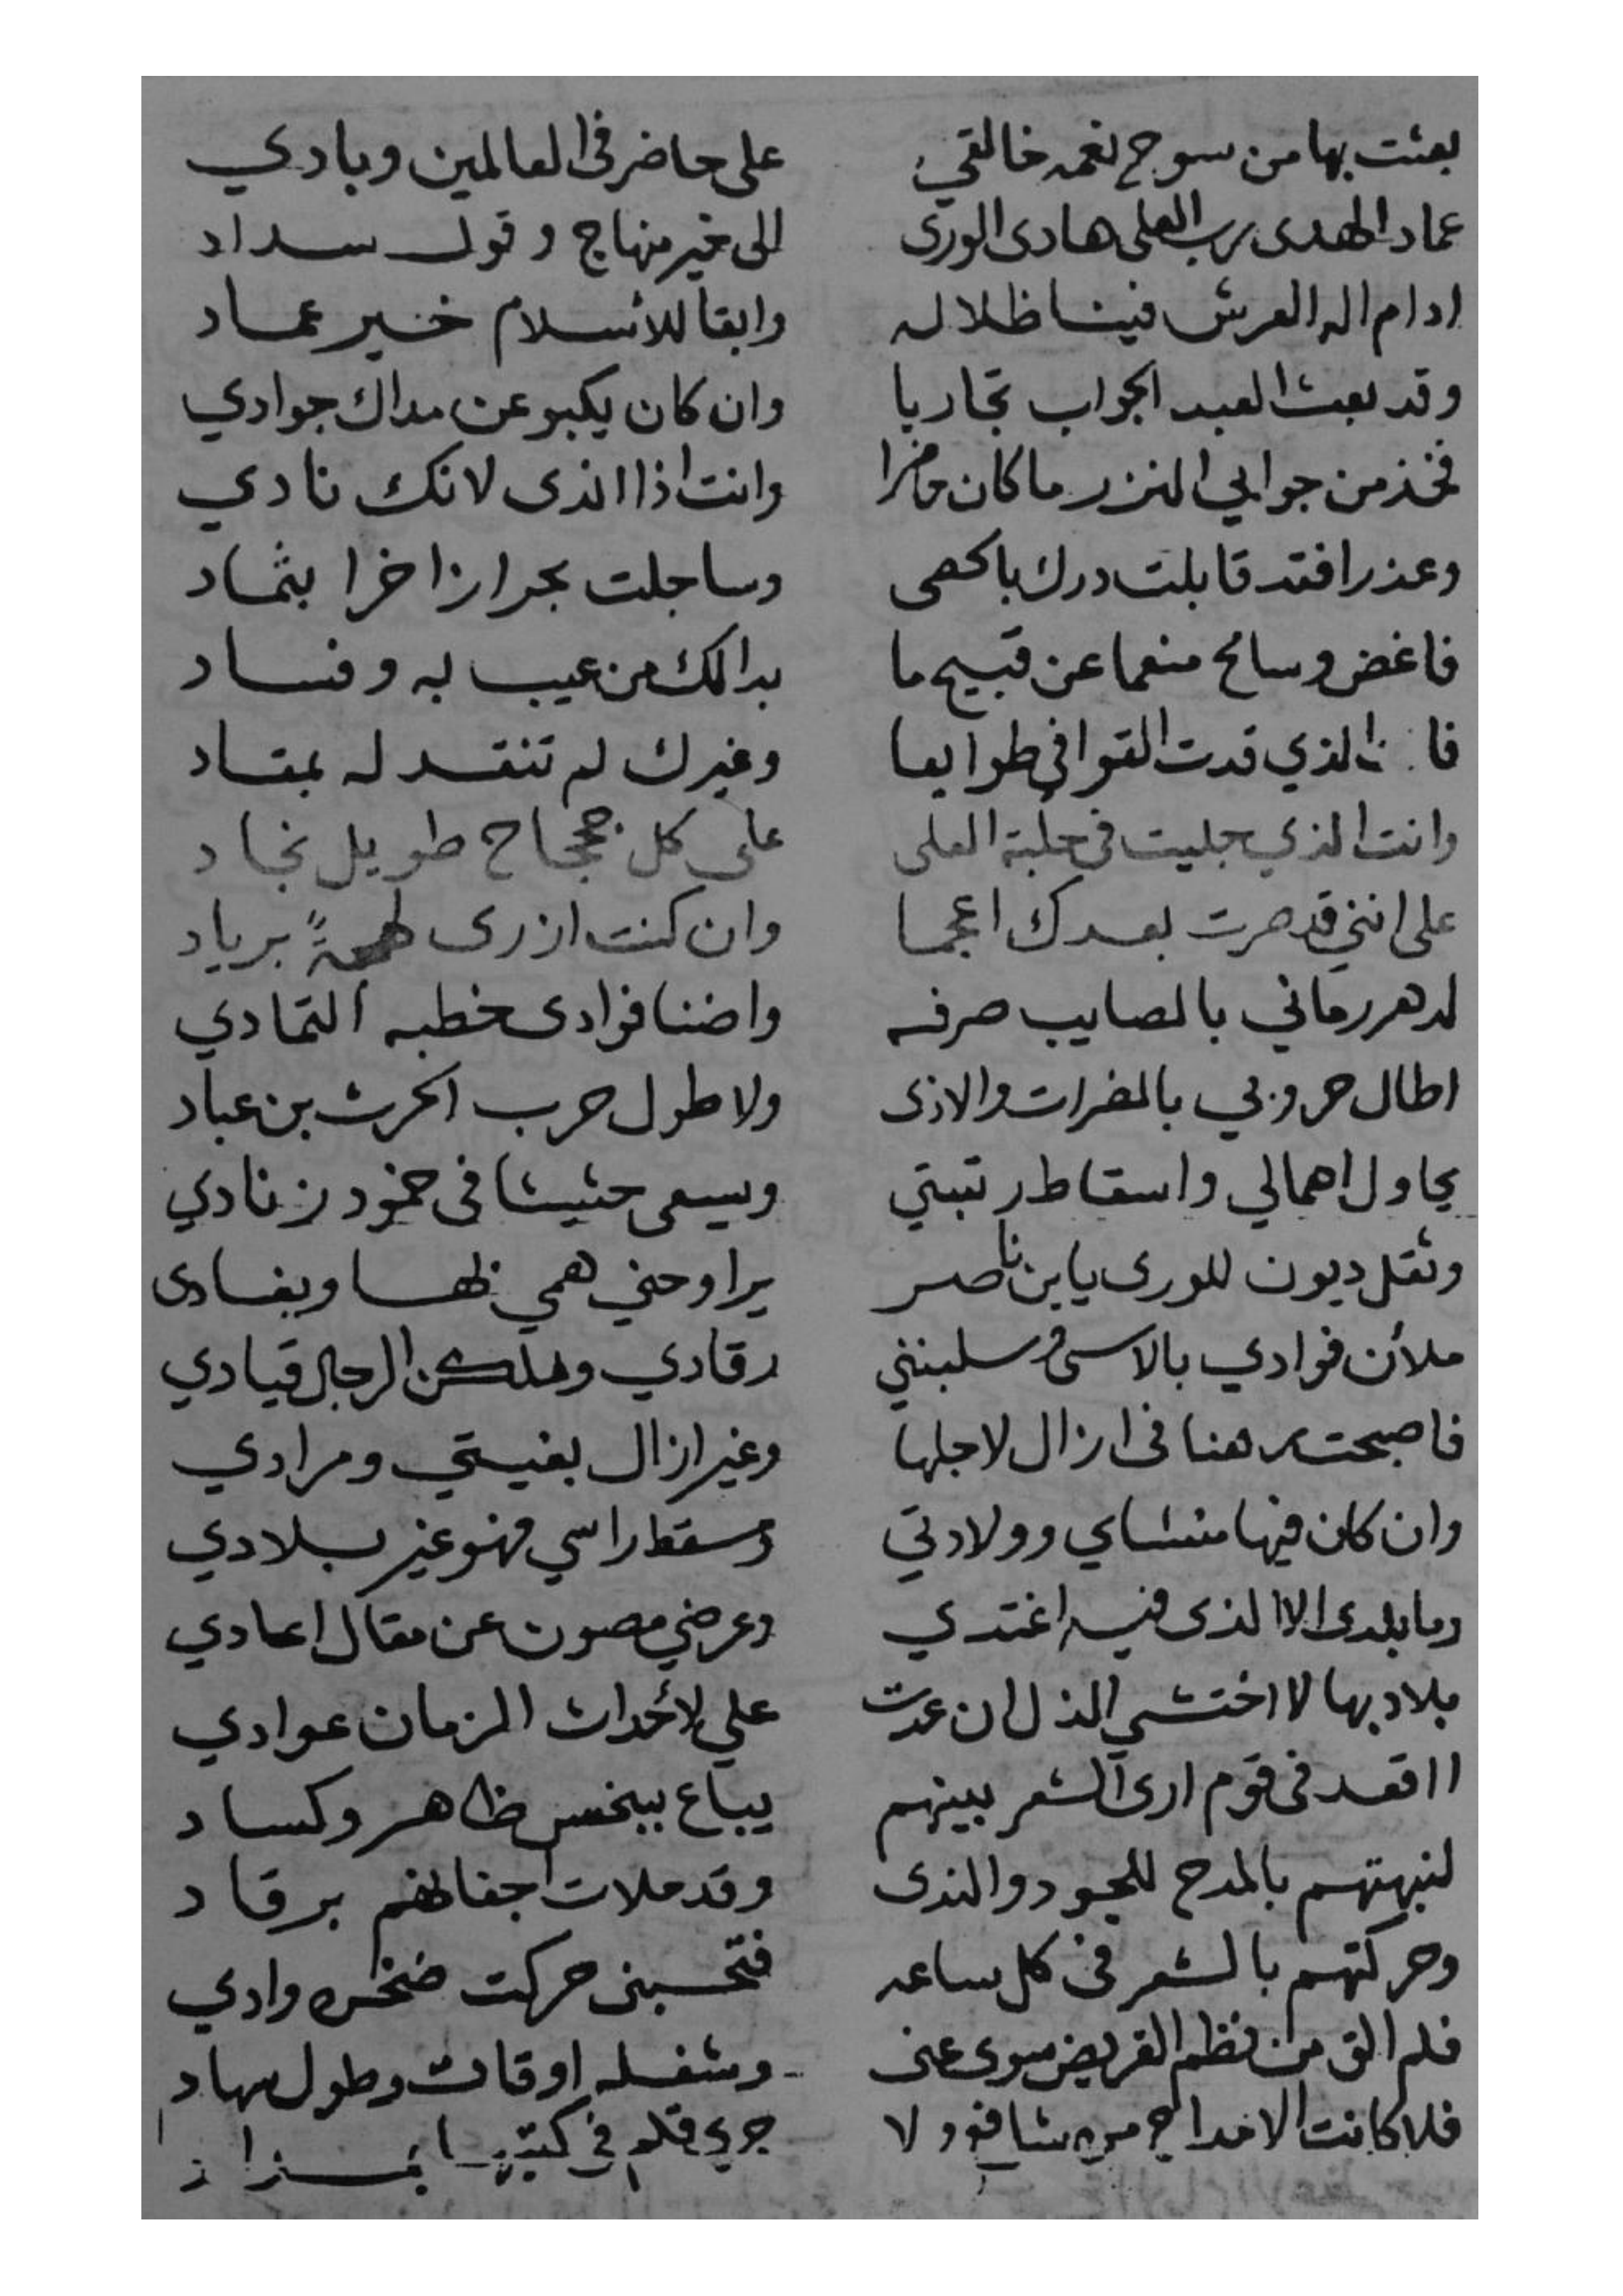 بعثت بها من سوح نغمه خالقي على حاضر في العالمين وبادي
عماد الهدى رب العلى هادى الورى الى خير منهاج وقول سداد
ادام اله العرش فينا ظلاله وابقا للأسلام خير عماد
وقد بعث العبد الجواب تجاريا وان كان يكبو عن مداك جوادي
فخذ من جوابي النزر ما كان حاضرا وانت اذا الذى لانك نادي
وعذرا فقد قابلت درك بالحصى وساجلت بحرا زاخرا بثماد
فاغض وسامح منعما عن قبيح ما بدالك من عيب له وفساد
الذي قدت القوافي طوايعا وغيرك لم تنقد له بمقاد
وانت الذي جليت في حلبة العلى على كل جحجاح طويل نجاد
على انني قد صرت بعدك اعجما وان كنت ازرى برياد
لدهر رماني بالمصايب صرفه واضنا فوادى خطبه التمادي
اطال حروبي بالمضرات والاذى ولا طول حرب الحرث بن عباد
يحاول اهمالي واسقاط رتبتي ويسعى حثيثا فى خمود زنادي
وثقل ديون للورى يا بن ناصر يراوحني همي بها ويغادى
ملأن فوادي بالاسى وسلبنني رقادي وملكن الرجال قيادي
فاصبحت رهنا فى ازال لاجلها وغير ازال بغيتي ومرادي
وان كان فيها منشاي وولادتي ومسقط راسي فهو غير بلادي
وما بلدى الا الذى فيه اغتدي وعرضي مصون عن مقال اعادي
بلاد بها لا اختشي الذل ان عدت علي لأحداث الزمان عوادي
ااقعد فى قوم ارى الشعر بينهم يباع ببخس ظاهر وكساد
لنبهتهم بالمدح للجود والندى وقد ملات اجفانهم برقاد
وحركتهم بالشعر فى كل ساعه فتحسبنى حركت صخره وادي
فلم الق من نظم القريض سوى عنى وشغله اوقات وطول سهاد
فلا كانت الامداح من شافه ولا جرى قلم في كتبها